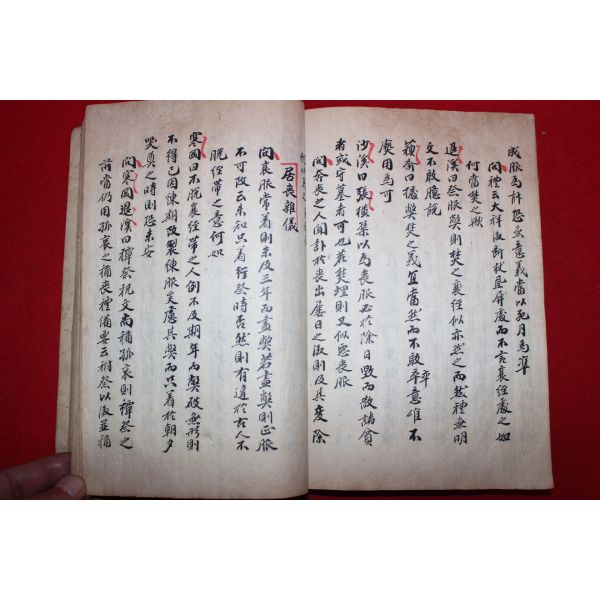 成服爲計恐失意義當以死月爲準
問禮云大祥後斷杖棄屏處而不言衰絰處之如
何當焚之歟
退溪曰祭服弊則焚之衰絰似亦然之而然禮無明
文不敢臆說
蘋前曰據弊焚之義宜當然而不敢率意唯不
廢用爲可
沙溪曰張橫渠以爲喪服必於除日毁而散諸貧
者或守墓者可也若焚埋則又似惡喪服
問奔喪之人聞訃於喪出屢日之後則及其變除
居喪雜儀
問衰服常着則未及三年而盡弊若盡弊則正服
不可改云未知只着行祭時否然則有違於古人不
脫絰帶之意何如
寒岡曰不脫衰絰帶之人例不及期年而弊破無形則
不得已因陳期改製練服矣慮其弊而只着於朝夕
哭奠之時則恐未安
問寒岡退溪曰禫祭祝文尚稱孤哀則禫祭之
前當仍用孤哀之稱喪禮備要云祔祭以後並稱